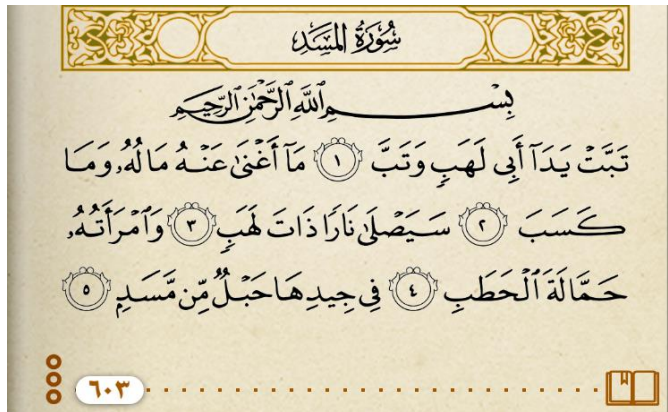 سُورَةُ المَسَدِ
بِسْمِ ٱللَّهِ ٱلرَّحْمَٰنِ ٱلرَّحِيمِ
تَبَّتْ يَدَآ أَبِى لَهَبٍ وَتَبَّ ١ مَآ أَغْنَىٰ عَنْهُ مَالُهُۥ وَمَا
كَسَبَ ٢ سَيَصْلَىٰ نَارًا ذَاتَ لَهَبٍ ٣ وَٱمْرَأَتُهُۥ
حَمَّالَةَ ٱلْحَطَبِ ٤ فِى جِيدِهَا حَبْلٌ مِّن مَّسَدٍۭ ٥
٦٠٣